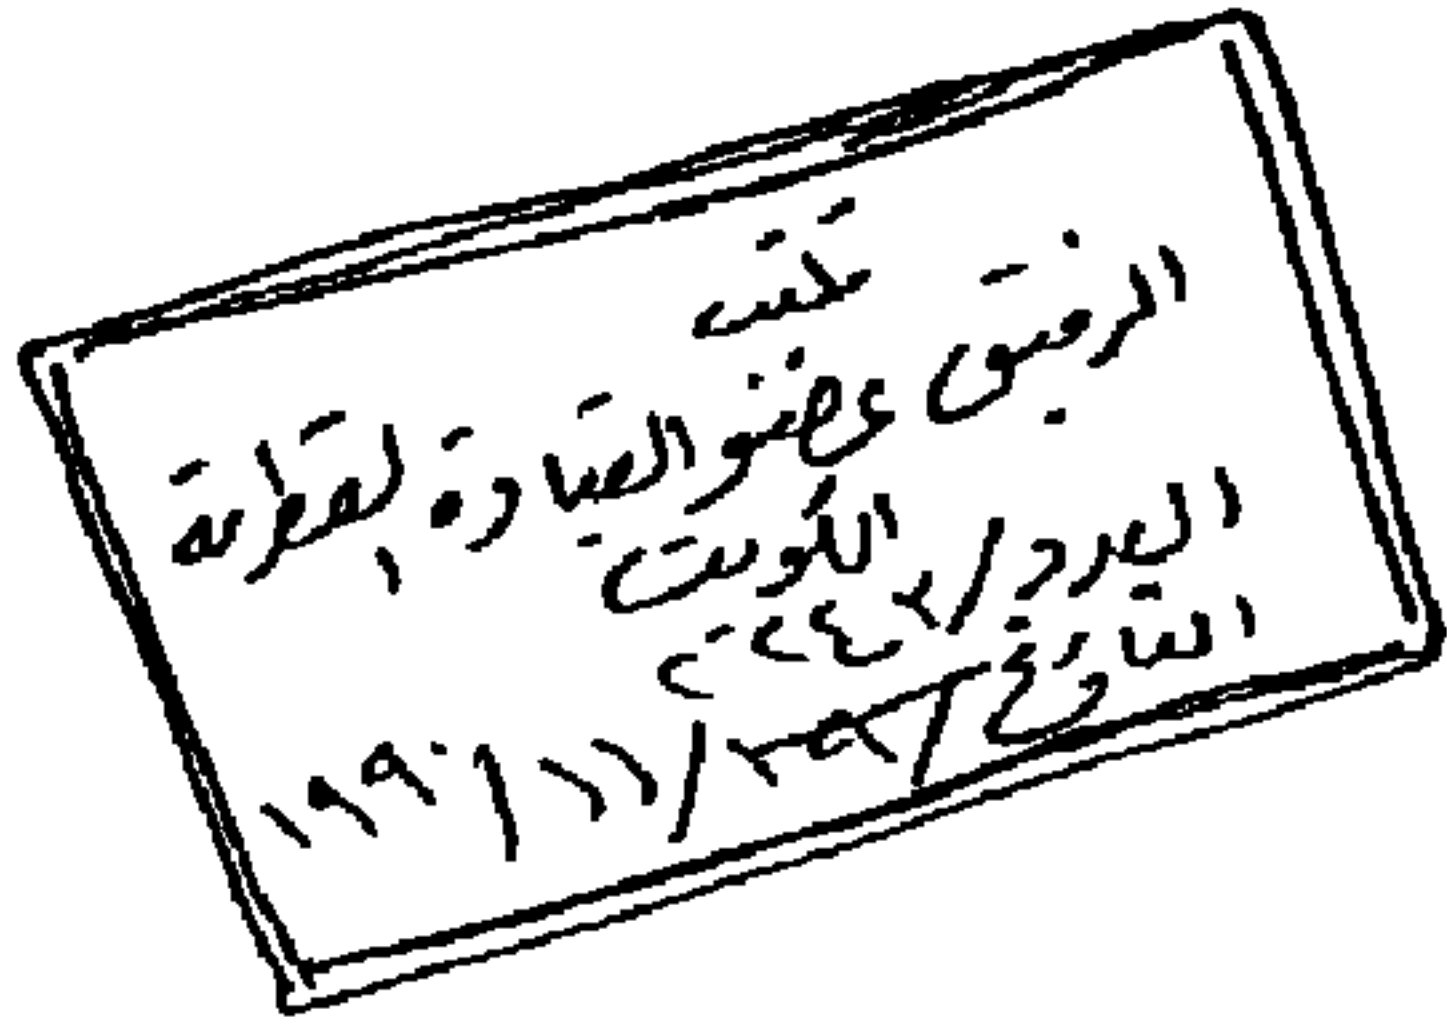 مكتب
الرفيق عضو القيادة القطرية
الكويت
العدد /
التاريخ / ٢٩ / ١١ / ١٩٩٠